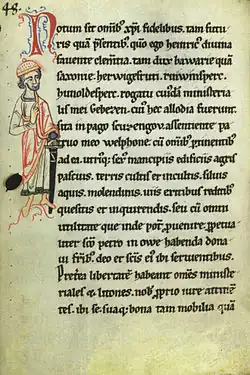 48.
Notum sit omīb; xp̄i fidelibus. tam futu
ris quā p̄sentib; quo ego heinric' diuina
fauente clentia. tam dux bawarie quam
saxonie. herwigesrut. ruwinisperc.
hunoldesperc. rogatu cuiusdā ministeria
lis mei Gebezen. cui' hec allodia fuerunt.
sita in pago scuzengov. assentiente pa
truo meo welphone. cū omīb; ptinentib'
ad ea utriq; sex' mancipiis edificiis agris
pascuis. terris cultis et incultis. siluis
aquis. molendinis. uiis exitibus redditib'
quesitis et inquirendis. seu cū omni
utilitate que inde pot' puenire. ppetua
liter sc̄o petro in owe habenda dona
ui frīb; deo et sc̄is ei' ibi seruientibus.
Pretea libertatē habeant oms̄ ministe
riales & litones. nob' pprio iure attinē
tes. ibi se. suaq; bona tam mobilia quā